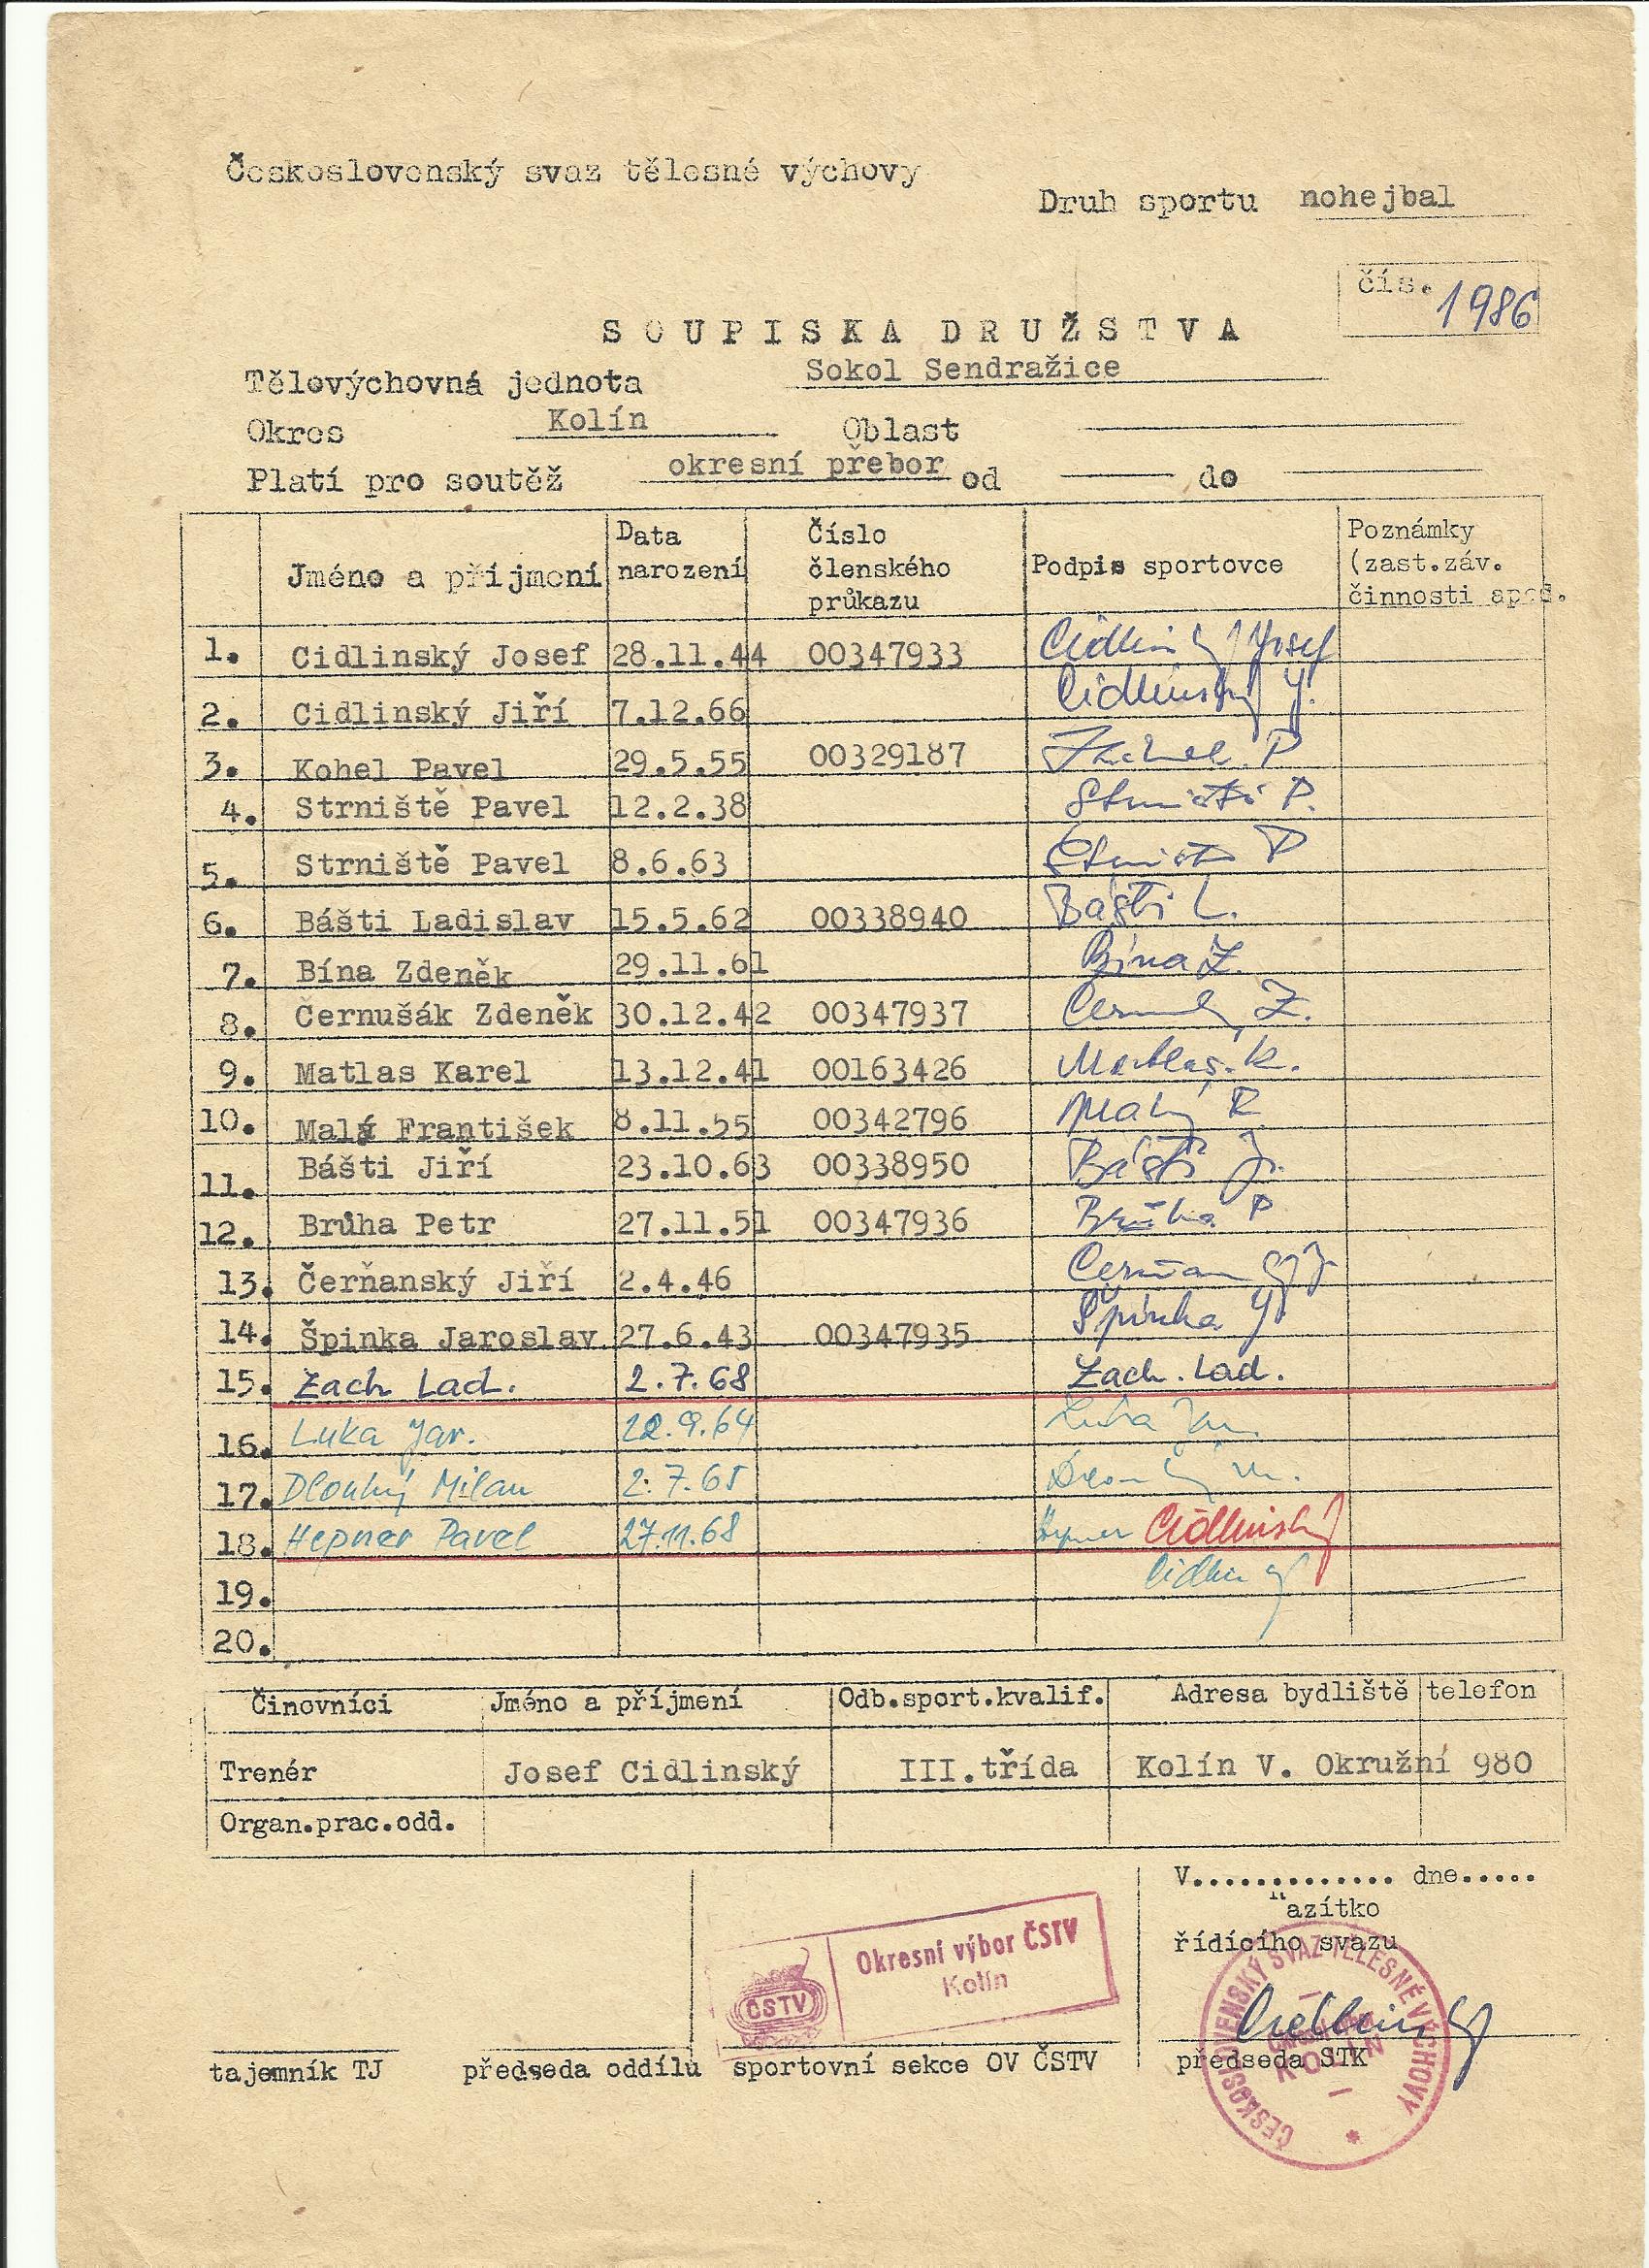 Československý svaz tělesné výchovy
Druh sportu nohejbal
čís. 1986
SOUPISKA DRUŽSTVA
Tělovýchovná jednota Sokol Sendražice
Okres Kolín Oblast
Platí pro soutěž okresní přebor od do
Jméno a příjmení Data narození Číslo členského průkazu Podpis sportovce Poznámky (zast.záv. činnosti apod.
1. Cidlinský Josef 28.11.44 00347933 Cidlinský Josef
2. Cidlinský Jiří 7.12.66 Cidlinský J.
3. Kohel Pavel 29.5.55 00329187 P
4. Strniště Pavel 12.2.38 Strniště P.
5. Strniště Pavel 8.6.63 Strniště P
6. Bášti Ladislav 15.5.62 00338940 Bášti L.
7. Bína Zdeněk 29.11.61 Bína Z.
8. Černušák Zdeněk 30.12.42 00347937 Z.
9. Matlas Karel 13.12.41 00163426 Matlas K.
10. Malý František 8.11.55 00342796 Malý
11. Bášti Jiří 23.10.63 00338950 Bášti J.
12. Brůha Petr 27.11.51 00347936 Brůha P
13. Čerňanský Jiří 2.4.46
14. Špinka Jaroslav 27.6.43 00347935 Špinka J
15. Zach Lad. 2.7.68 Zach. Lad.
16. Luka Jar. 22.9.64 Luka Jar.
17. Dlouhý Milan 2.7.65
18. Hepner Pavel 27.11.68 Hepner Cidlinský
19.
20.
Činovníci Jméno a příjmení Odb.sport.kvalif. Adresa bydliště telefon
Trenér Josef Cidlinský III.třída Kolín V. Okružní 980
Organ.prac.odd.
V............. dne.....
azítko
řídícího svazu
Okresní výbor ČSTV
Kolín
ČSTV
ČESKOSLOVENSKÝ SVAZ TĚLESNÉ VÝCHOVY
KOLÍN
Cidlinský
tajemník TJ předseda oddílu sportovní sekce OV ČSTV předseda STK